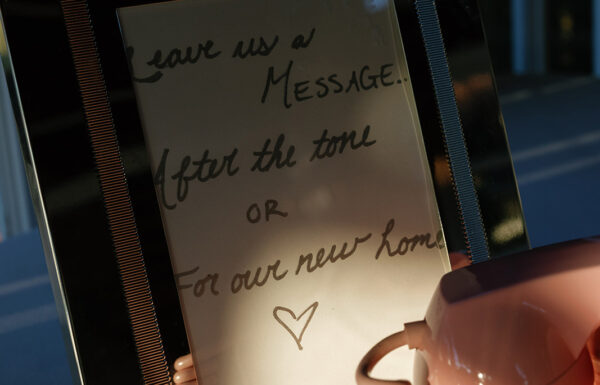 Leave us a
MESSAGE..
After the tone
OR
For our new home